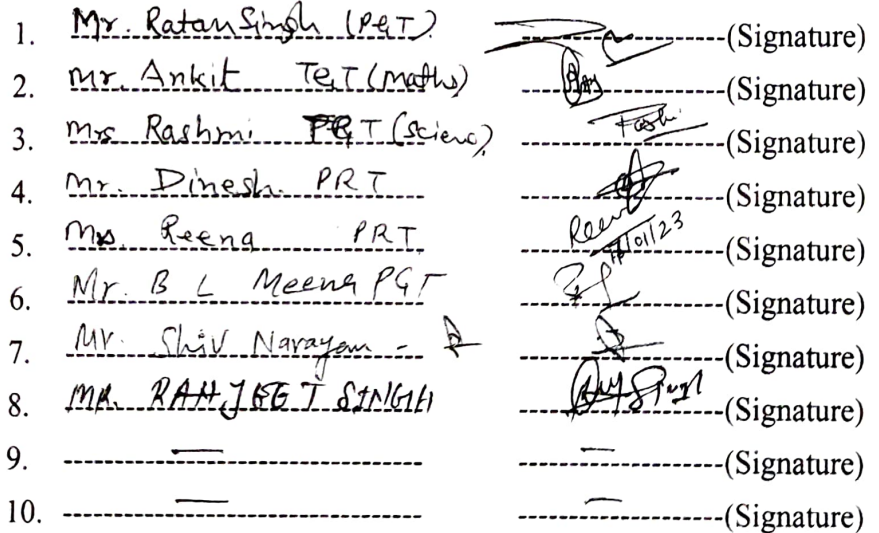 1. Mr. Ratan Singh (PGT) (Signature)
2. Mr. Ankit TGT (Maths) (Signature)
3. Mrs Rashmi TGT (Scienc) (Signature)
4. Mr. Dinesh. PRT (Signature)
5. Mrs. Reena PRT Reena 01/23 (Signature)
6. Mr. B L Meena PGT (Signature)
7. Mr. Shiv Narayan - (Signature)
8. MR. RANJEET SINGH Singh (Signature)
9. — — (Signature)
10. — — (Signature)